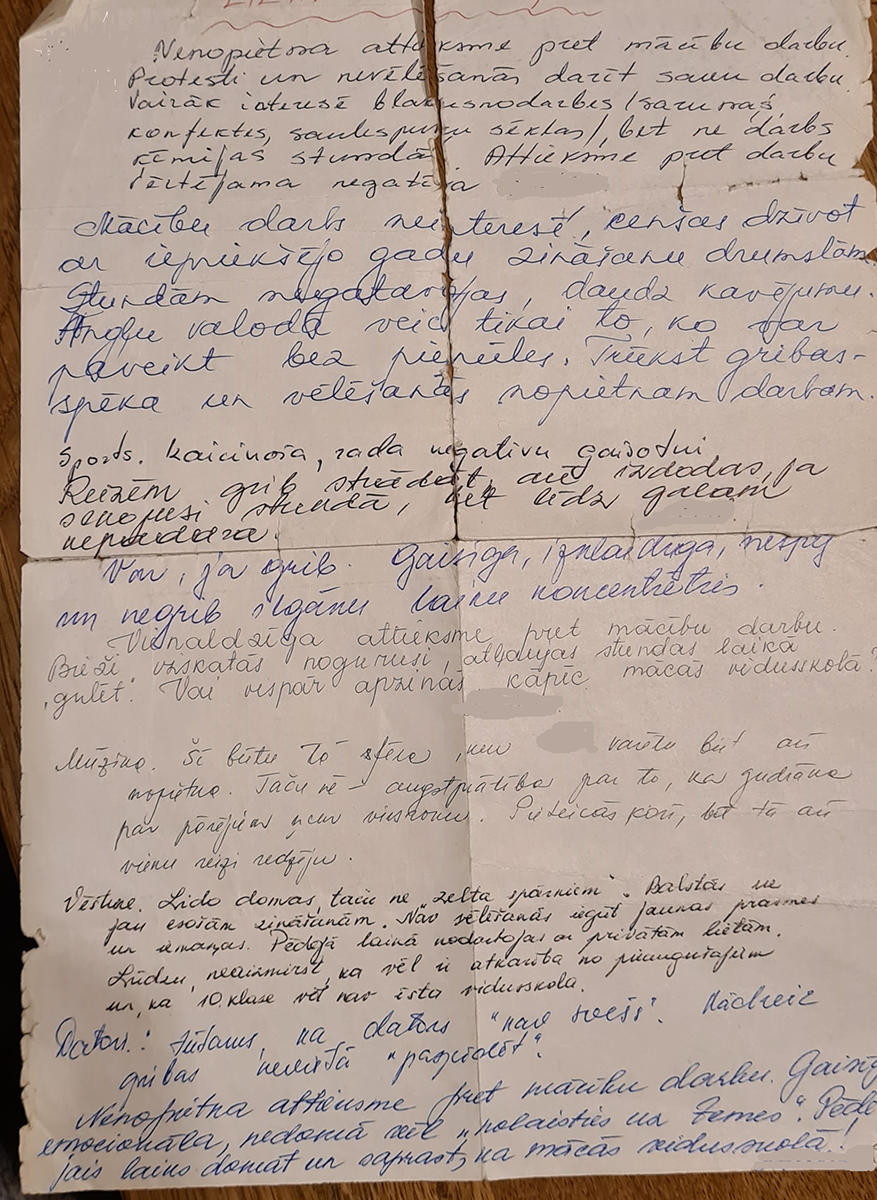 Nenopietna attieksme pret mācību darbu.
Protesti un nevēlēšanās darīt savu darbu
Vairāk interesē blakusnodarbes /sarunas
konfektes, saulespuķu sēklas/, bet ne darbs
ķīmijas stundā. Attieksme pret darbu
vērtējama negatīva
Mācību darbs neinteresē, cenšas dzīvot
ar iepriekšējo gadu zināšanu drumslām.
Stundām negatavojas, daudz kavējumu.
Angļu valodā veic tikai to, ko var
paveikt bez piepūles. Trūkst gribas-
spēka un vēlēšanās nopietnam darbam.
Sports. Kaicinoša, rada negatīvu gaisotni
Reizēm grib strādāt, arī izdodas, ja
stundā, bet līdz galam
nepadara.
Var, ja grib. Gaisīga, izklaidīga, nespēj
un negrib ilgāku laiku koncentrēties.
Vienaldzīga attieksme pret mācību darbu.
Bieži uzskatās nogurusi, atļaujas stundas laikā
"gulēt". Vai vispār apzinās kāpēc mācās vidusskolā?
Mūzika. Šī būtu tā sfēra, kur varētu būt arī
nopietna. Taču nē - augstprātība par to, ka gudrāka
par pārējiem kur vienkoku. Pieteicās korī, bet tā arī
vienu reizi redzēju.
Vēsture. Lido domas, taču ne "zelta spārniem". Balstās uz
jau esošām zināšanām. Nav vēlēšanās iegūt jaunas prasmes
un iemaņas. Pēdējā laikā nodarbojas ar privātām lietām.
Lūdzu, neaizmirst, ka vēl ir atkarība no pieaugušajiem
un, ka 10.klase vēl nav īsta vidusskola.
Dators.: Jūtams, ka dators "nav svešs". Kādreiz
gribas nevietā "paspīdēt".
Nenopietna attieksme pret mācību darbu. Gaisīg
emocionāla, nedomā vēl "nolaisties uz zemes". Pēdē
jais laiks domāt un saprast, ka mācās vidusskolā!